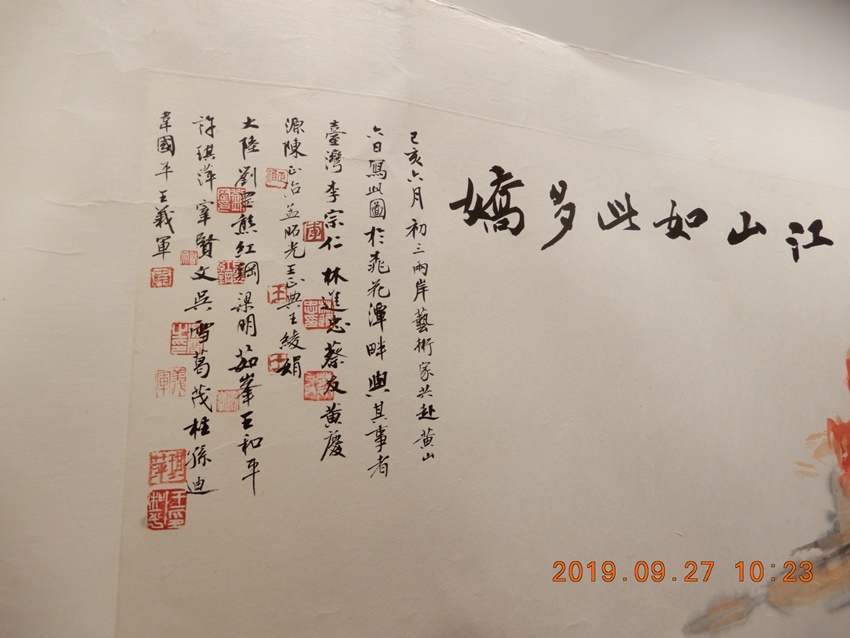 江山如此多嬌
己亥六月初三兩岸藝術家共赴黃山
六日寫此圖於桃花潭畔與其事者
臺灣李宗仁林進忠蔡友黃慶
源陳正治孟昭光王正典王綾娟
大陸劉罡熊紅鋼梁明茹峯王和平
許琪萍寧賢文吳雪葛茂柱孫迪
韋國平王義軍
2019.09.27 10:23